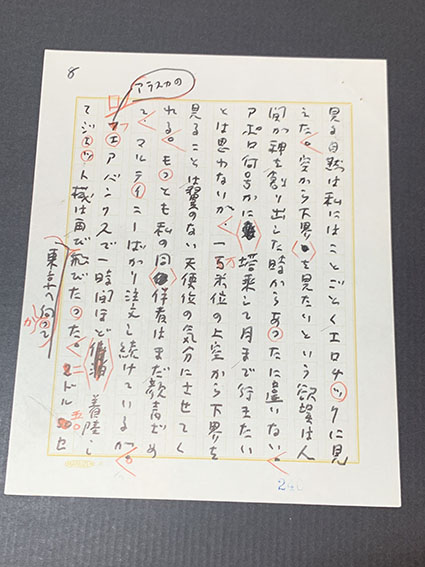 8
見る自然は私にはことごとくエロチックに見
えた。空から下界を見たいという欲望は人
間が神を創り出した時からあったに違いない。
アポロ何号かに搭乗して月まで行きたい
とは思わないが、一万米位の上空から下界を
見ることは翼のない天使位の気分にさせてく
れる。もっとも私の同伴者はまだ顔青ざめ
て、マルティニーばかり注文し続けているが。
アラスカの
フェアバンクスで一時間ほど着陸し
てジェット機は再び飛びたった。二ドル五〇セ
東京へ向って
か